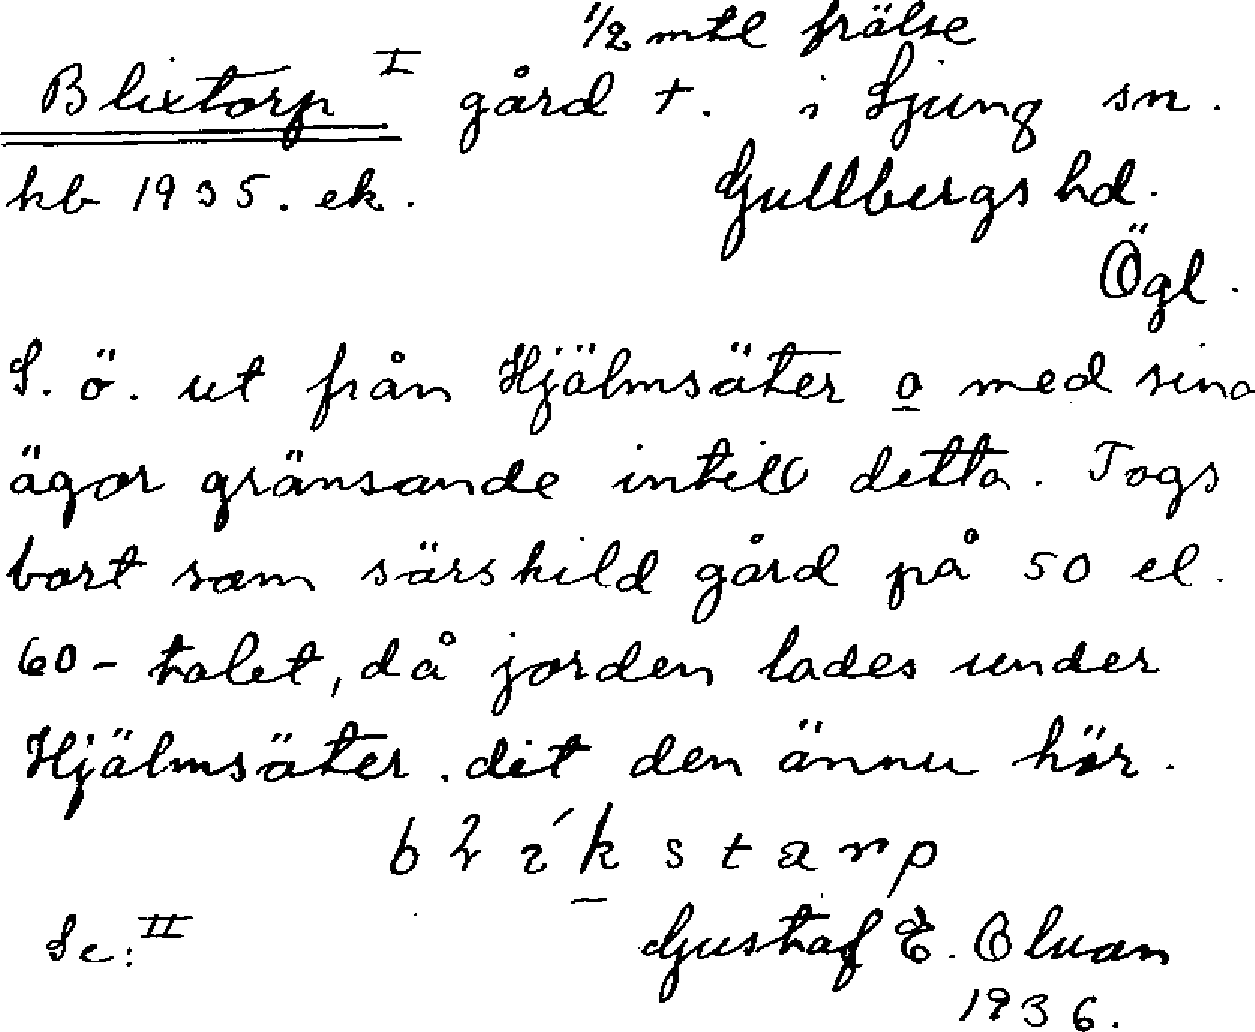 1/2 mtl frälse
Blixtorp I gård +. i Ljung sn.
kb 1935. ek. Gullbergs hd.
Ögl.
S. ö. ut från Hjälmsäter o med sina
ägor gränsande intill detta. Togs
bort som särskild gård på 50 el.
60-talet, då jorden lades under
Hjälmsäter. dit den ännu hör.
blikstarp
Se: II Gustaf E. Olvan
1936.